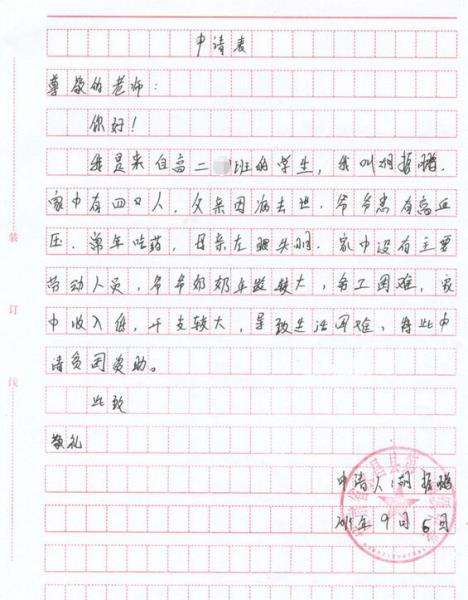 申请表
尊敬的老师：
你好！
我是来自高二 班的学生，我叫胡振鹏.
家中有四口人，父亲因病去世.爷爷患有高血
压.常年吃药，母亲左 头 .家中没有主要
劳动人员，爷爷奶奶年龄较大，务工困难，家
中收入低，开支较大，导致生活困难，特此申
请贫困资助。
此致
敬礼
申请人:胡振鹏
年9月6日
装
订
线